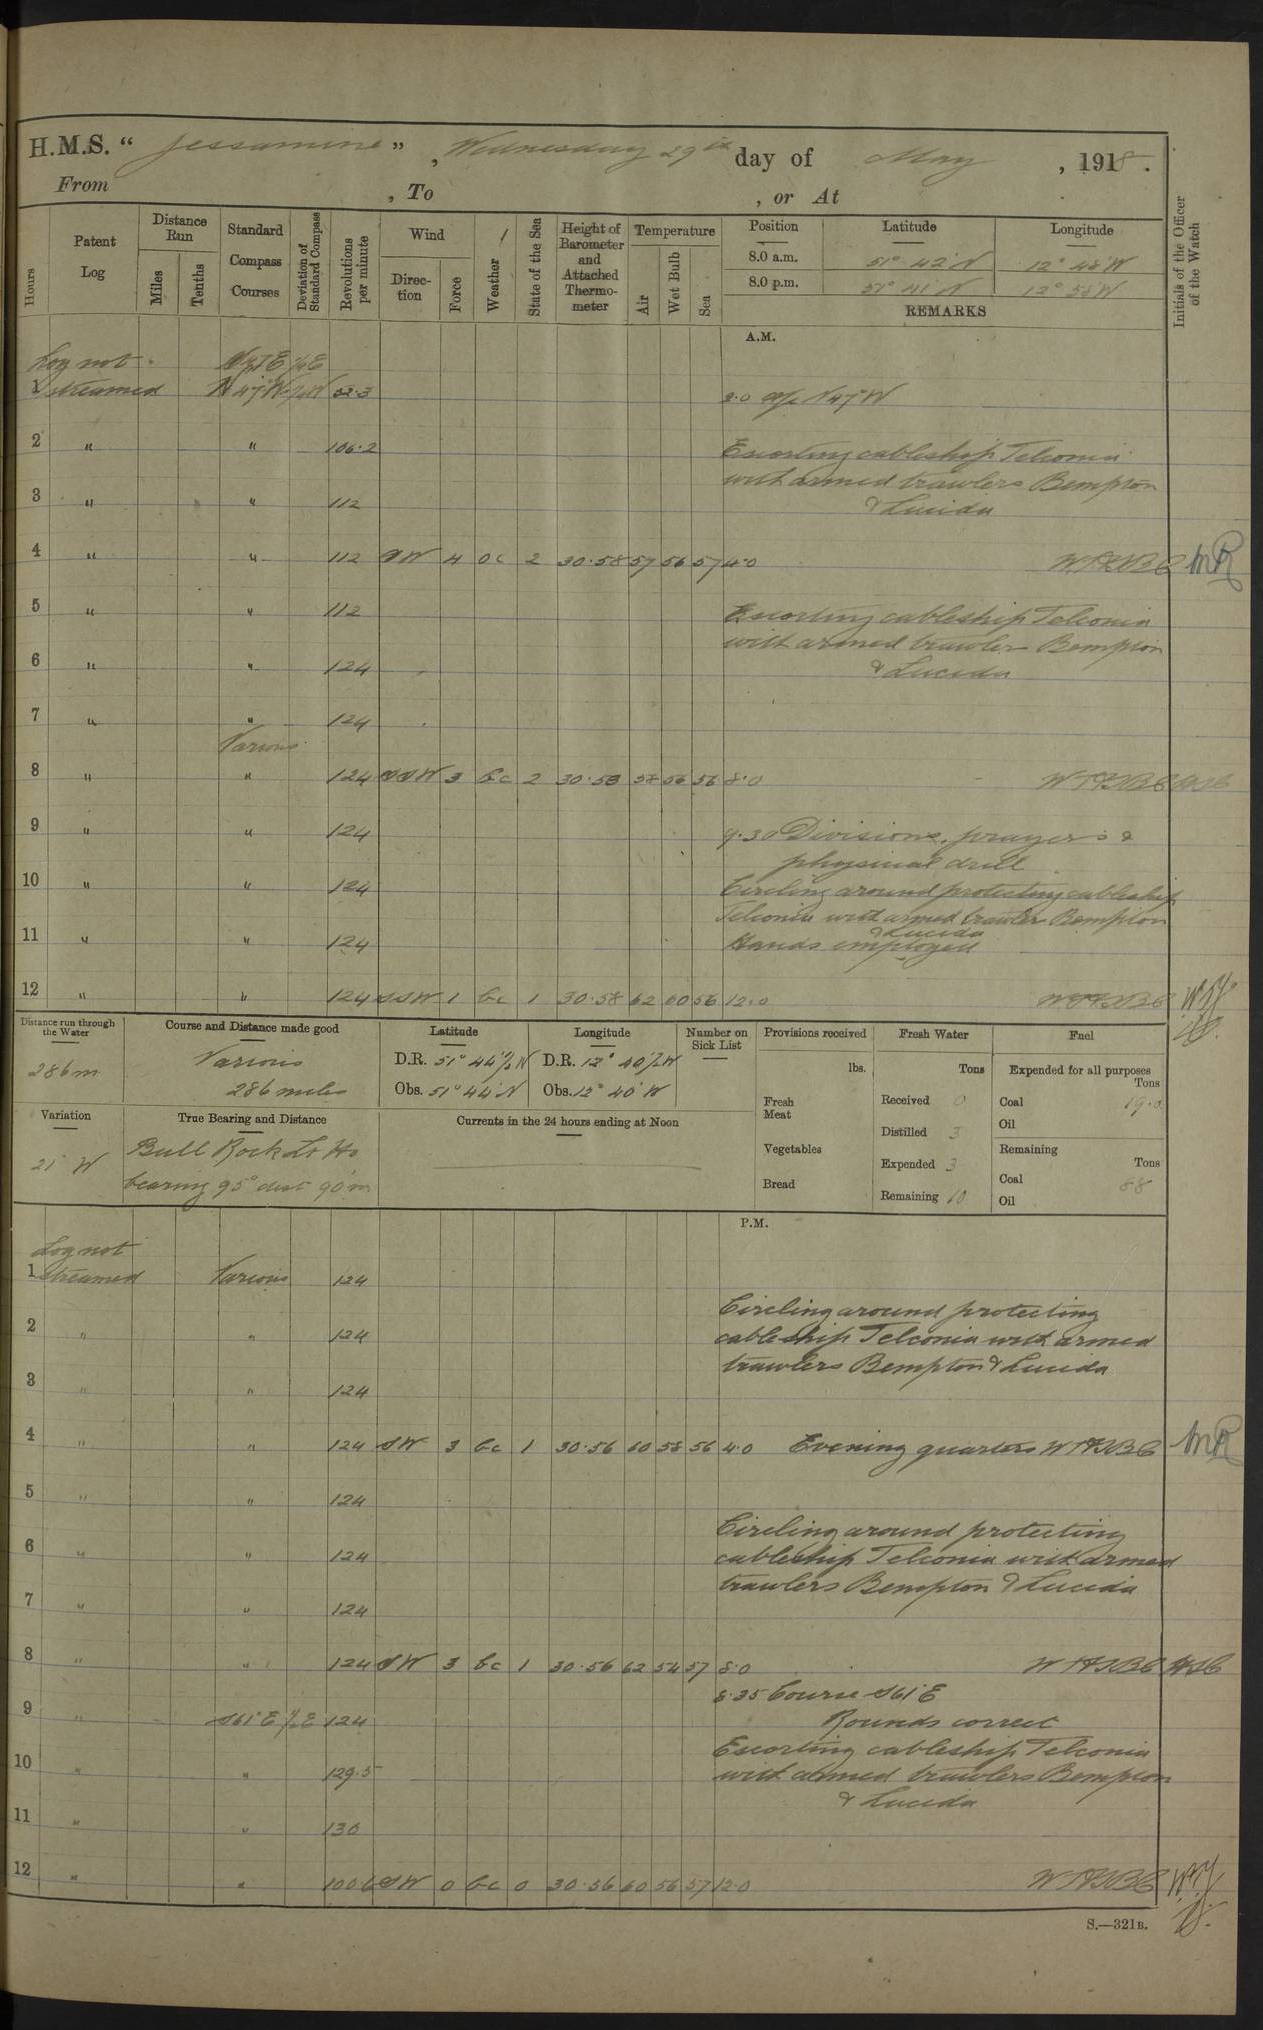 H.M.S. “ Jessamine ” , Wednesday 29th day of May , 1918 .
From , To , or At
Hours Patent Log Distance Run Miles Tenths Standard Compass Courses Deviation of Standard Compass Revolutions per minute Wind Direction Force Weather State of the Sea Height of Barometer and Attached Thermometer Temperature Air Wet Bulb Sea Position Latitude Longitude Initials of the Officer of the Watch
8.0 a.m. 51° 42' N 12° 48' W
8.0 p.m. 51° 41' N
REMARKS
A.M.
Log not
1 streamed N 47° W 2.0 a/c N 47° W
2 " " 106.2 Escorting cableship Telconia
with armed trawlers Bempton
3 " " 112 & Lucida
4 " " 112 SW 4 oc 2 30.58 57 56 57 4.0 MR
5 " " 112 Escorting cableship Telconia
with armed trawler Bempton
6 " " 124 & Lucida
7 " " 124
Various
8 " " 124 SSW 3 bc 2 30.58 58 56 56 8.0
9 " " 124 9.30 Divisions, prayers &
physical drill
10 " " 124 Circling around protecting cableship
Telconia with armed trawler Bempton
& Lucida
11 " " 124 Hands employed
12 " " 124 SSW 1 bc 1 30.58 62 60 56 12.0
Distance run through the Water Course and Distance made good Latitude Longitude Number on Sick List Provisions received Fresh Water Fuel
286m Various D.R. 51° 44½ N D.R. 12° 40½ W lbs. Tons Expended for all purposes Tons
286 miles Obs. 51° 44' N Obs. 12° 40' W Fresh Meat Received 0 Coal 19.0
Oil
Variation True Bearing and Distance Currents in the 24 hours ending at Noon Distilled 3
21° W Bull Rock Lt Ho Vegetables Expended 3 Remaining Tons
bearing 95° dist 90 m Bread Remaining 10 Coal
Oil
P.M.
Log not
1 streamed Various 124
Circling around protecting
2 " " 124 cableship Telconia with armed
trawlers Bempton & Lucida
3 " " 124
4 " " 124 SW 3 bc 1 30.56 60 58 56 4.0 Evening quarters MR
5 " " 124
Circling around protecting
6 " " 124 cableship Telconia with armed
trawlers Bempton & Lucida
7 " " 124
8 " " 124 SW 3 bc 1 30.56 62 54 57 8.0
8.35 Course S61°E
9 " S61°E ½E 124 Rounds correct
Escorting cableship Telconia
10 " " 129.5 with armed trawlers Bempton
& Lucida
11 " " 130
12 " " 100.6 SW 0 bc 0 30.56 60 56 57 12.0
S.—321B.